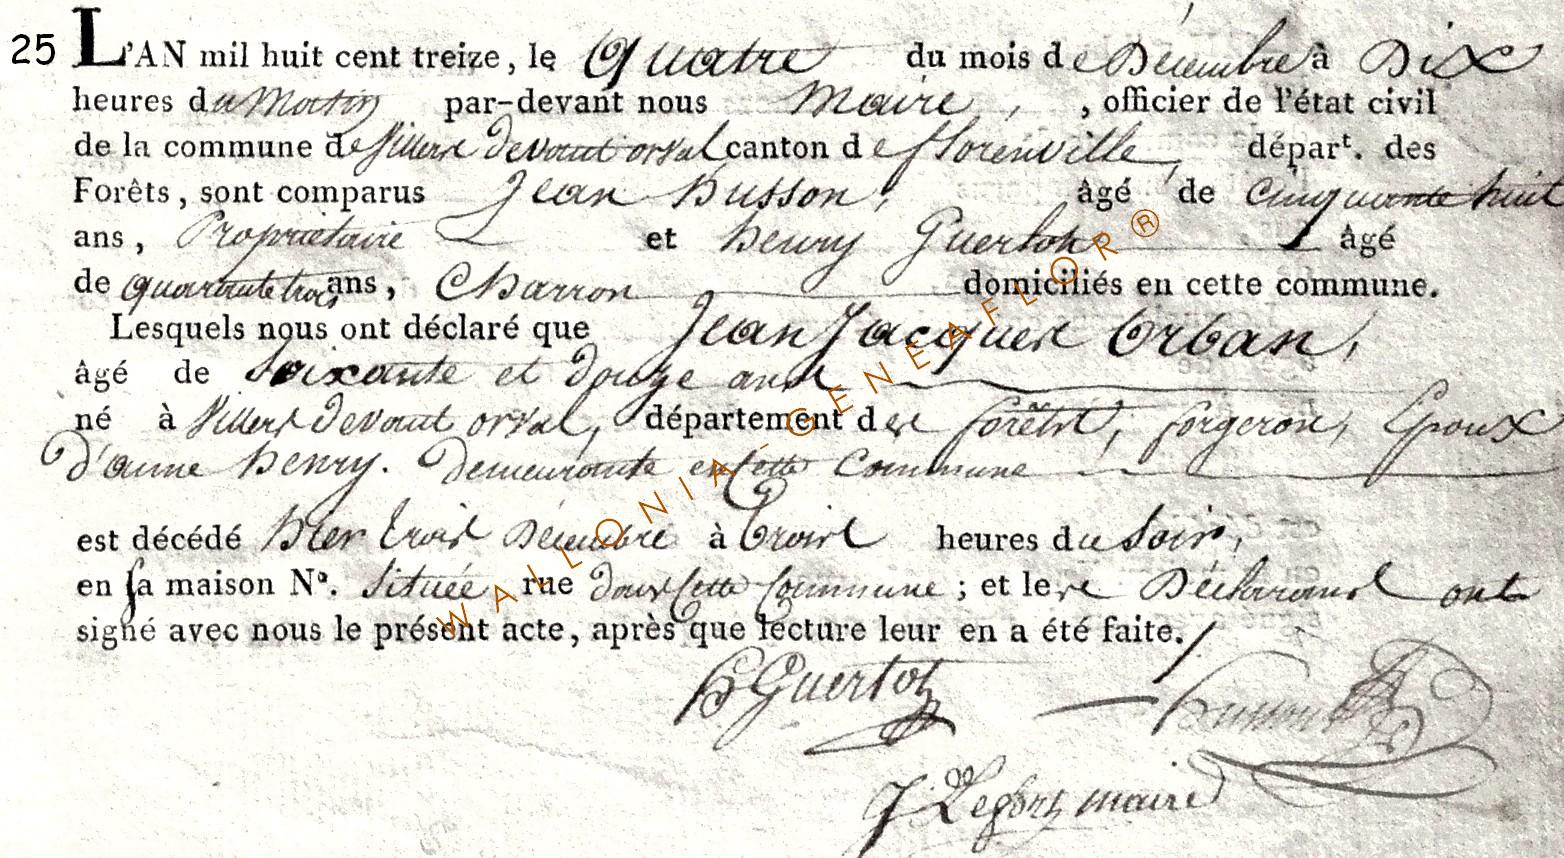 25 L'AN mil huit cent treize, le Quatre du mois de Décembre à Dix
heures du Matin par-devant nous Maire, , officier de l'état civil
de la commune de Villers devant orval canton de florenville, départ. des
Forêts, sont comparus Jean husson, âgé de cinquante huit
ans, Propriétaire et henry Guerlot âgé
de quarante trois ans, Charron domiciliés en cette commune.
Lesquels nous ont déclaré que Jean Jacques Orban,
âgé de Soixante et douze ans
né à Villers devant orval, département des forêts, forgeron, Epoux
d'anne henry. Demeurante en cette Commune
est décédé hier trois Décembre à trois heures du soir,
en sa maison Nº. située rue dans cette Commune ; et les Déclarans ont
signé avec nous le présent acte, après que lecture leur en a été faite.
h Guerlot husson
J Lefort maire
WALLONIA-GENEAFLOR®